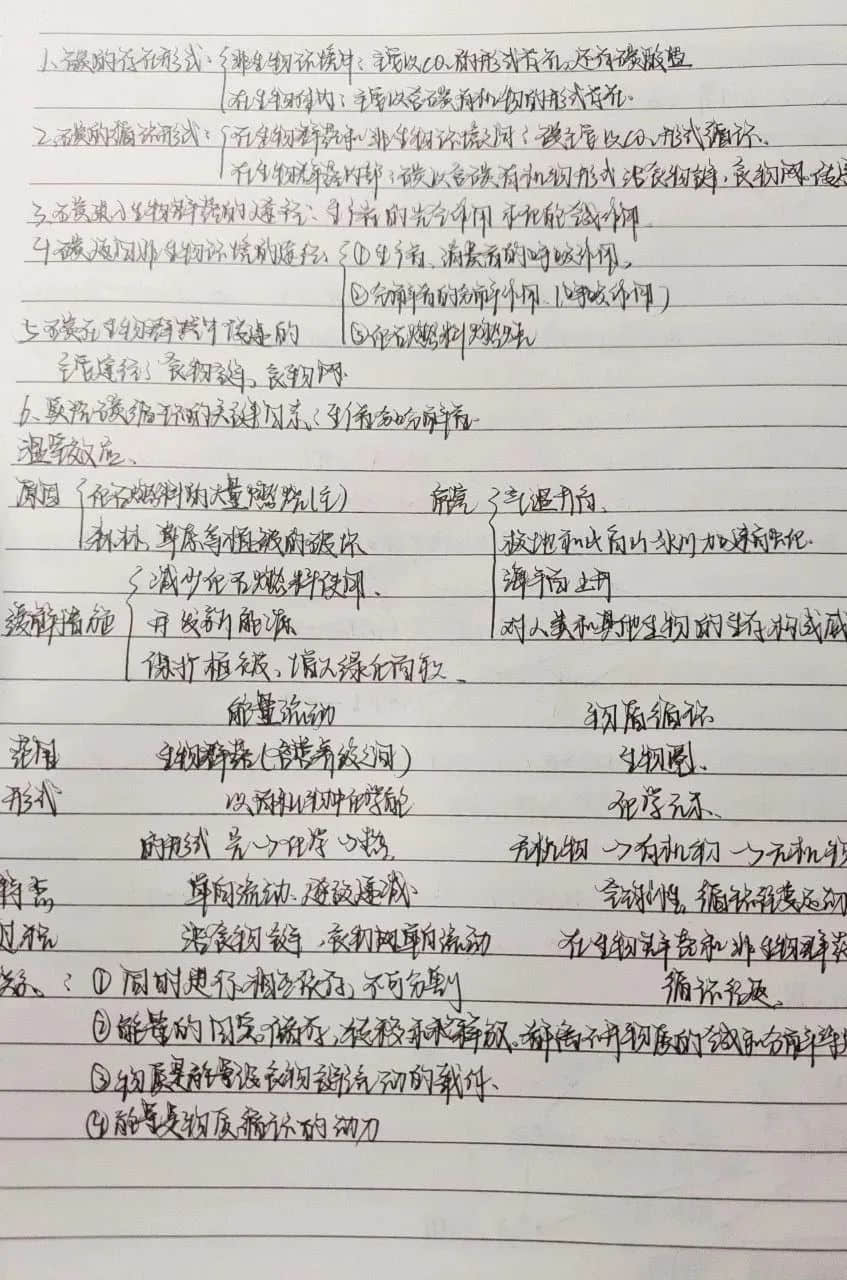 1、碳的存在形式：非生物环境中：主要以CO₂的形式存在，还有碳酸盐
在生物体内：主要以含碳有机物的形式存在.
2、碳的循环形式：在生物群落和非生物环境之间：碳主要以CO₂形式循环、
在生物群落内部：碳以含碳有机物形式 沿食物链，食物网 传
3、碳进入生物群落的途径：生产者的光合作用 和化能合成作用
4、碳返回非生物环境的途径：①生产者、消费者的呼吸作用，
②分解者的分解作用（呼吸作用）
5、碳在生物群落中传递的 ③化石燃料燃烧
主要途径：食物链，食物网.
6、联络碳循环的关键因素：生产者和分解者
温室效应、
原因 化石燃料的大量燃烧（主） 危害 气温升高、
森林，草原等植被的破坏 极地和高山冰川加速融化.
减少化石燃料使用、 海平面上升
缓解措施 开发新能源 对人类和其他生物的生存构成威
保护植被，增大绿化面积、
能量流动 物质循环
范围 生物群落（各营养级之间） 生物圈、
形式 以有机物中化学能 化学元素、
的形式 光→化学→热 无机物→有机物→无机物
特点 单向流动、逐级递减. 全球性，循环往复运动
过程 沿食物链，食物网单向流动 在生物群落和非生物群落
关系：①同时进行，相互依存，不可分割 循环往返、
②能量的固定，储存，转移和释放、都离不开物质的合成和分解等
③物质是能量沿食物链流动的载体、
④能量是物质循环的动力